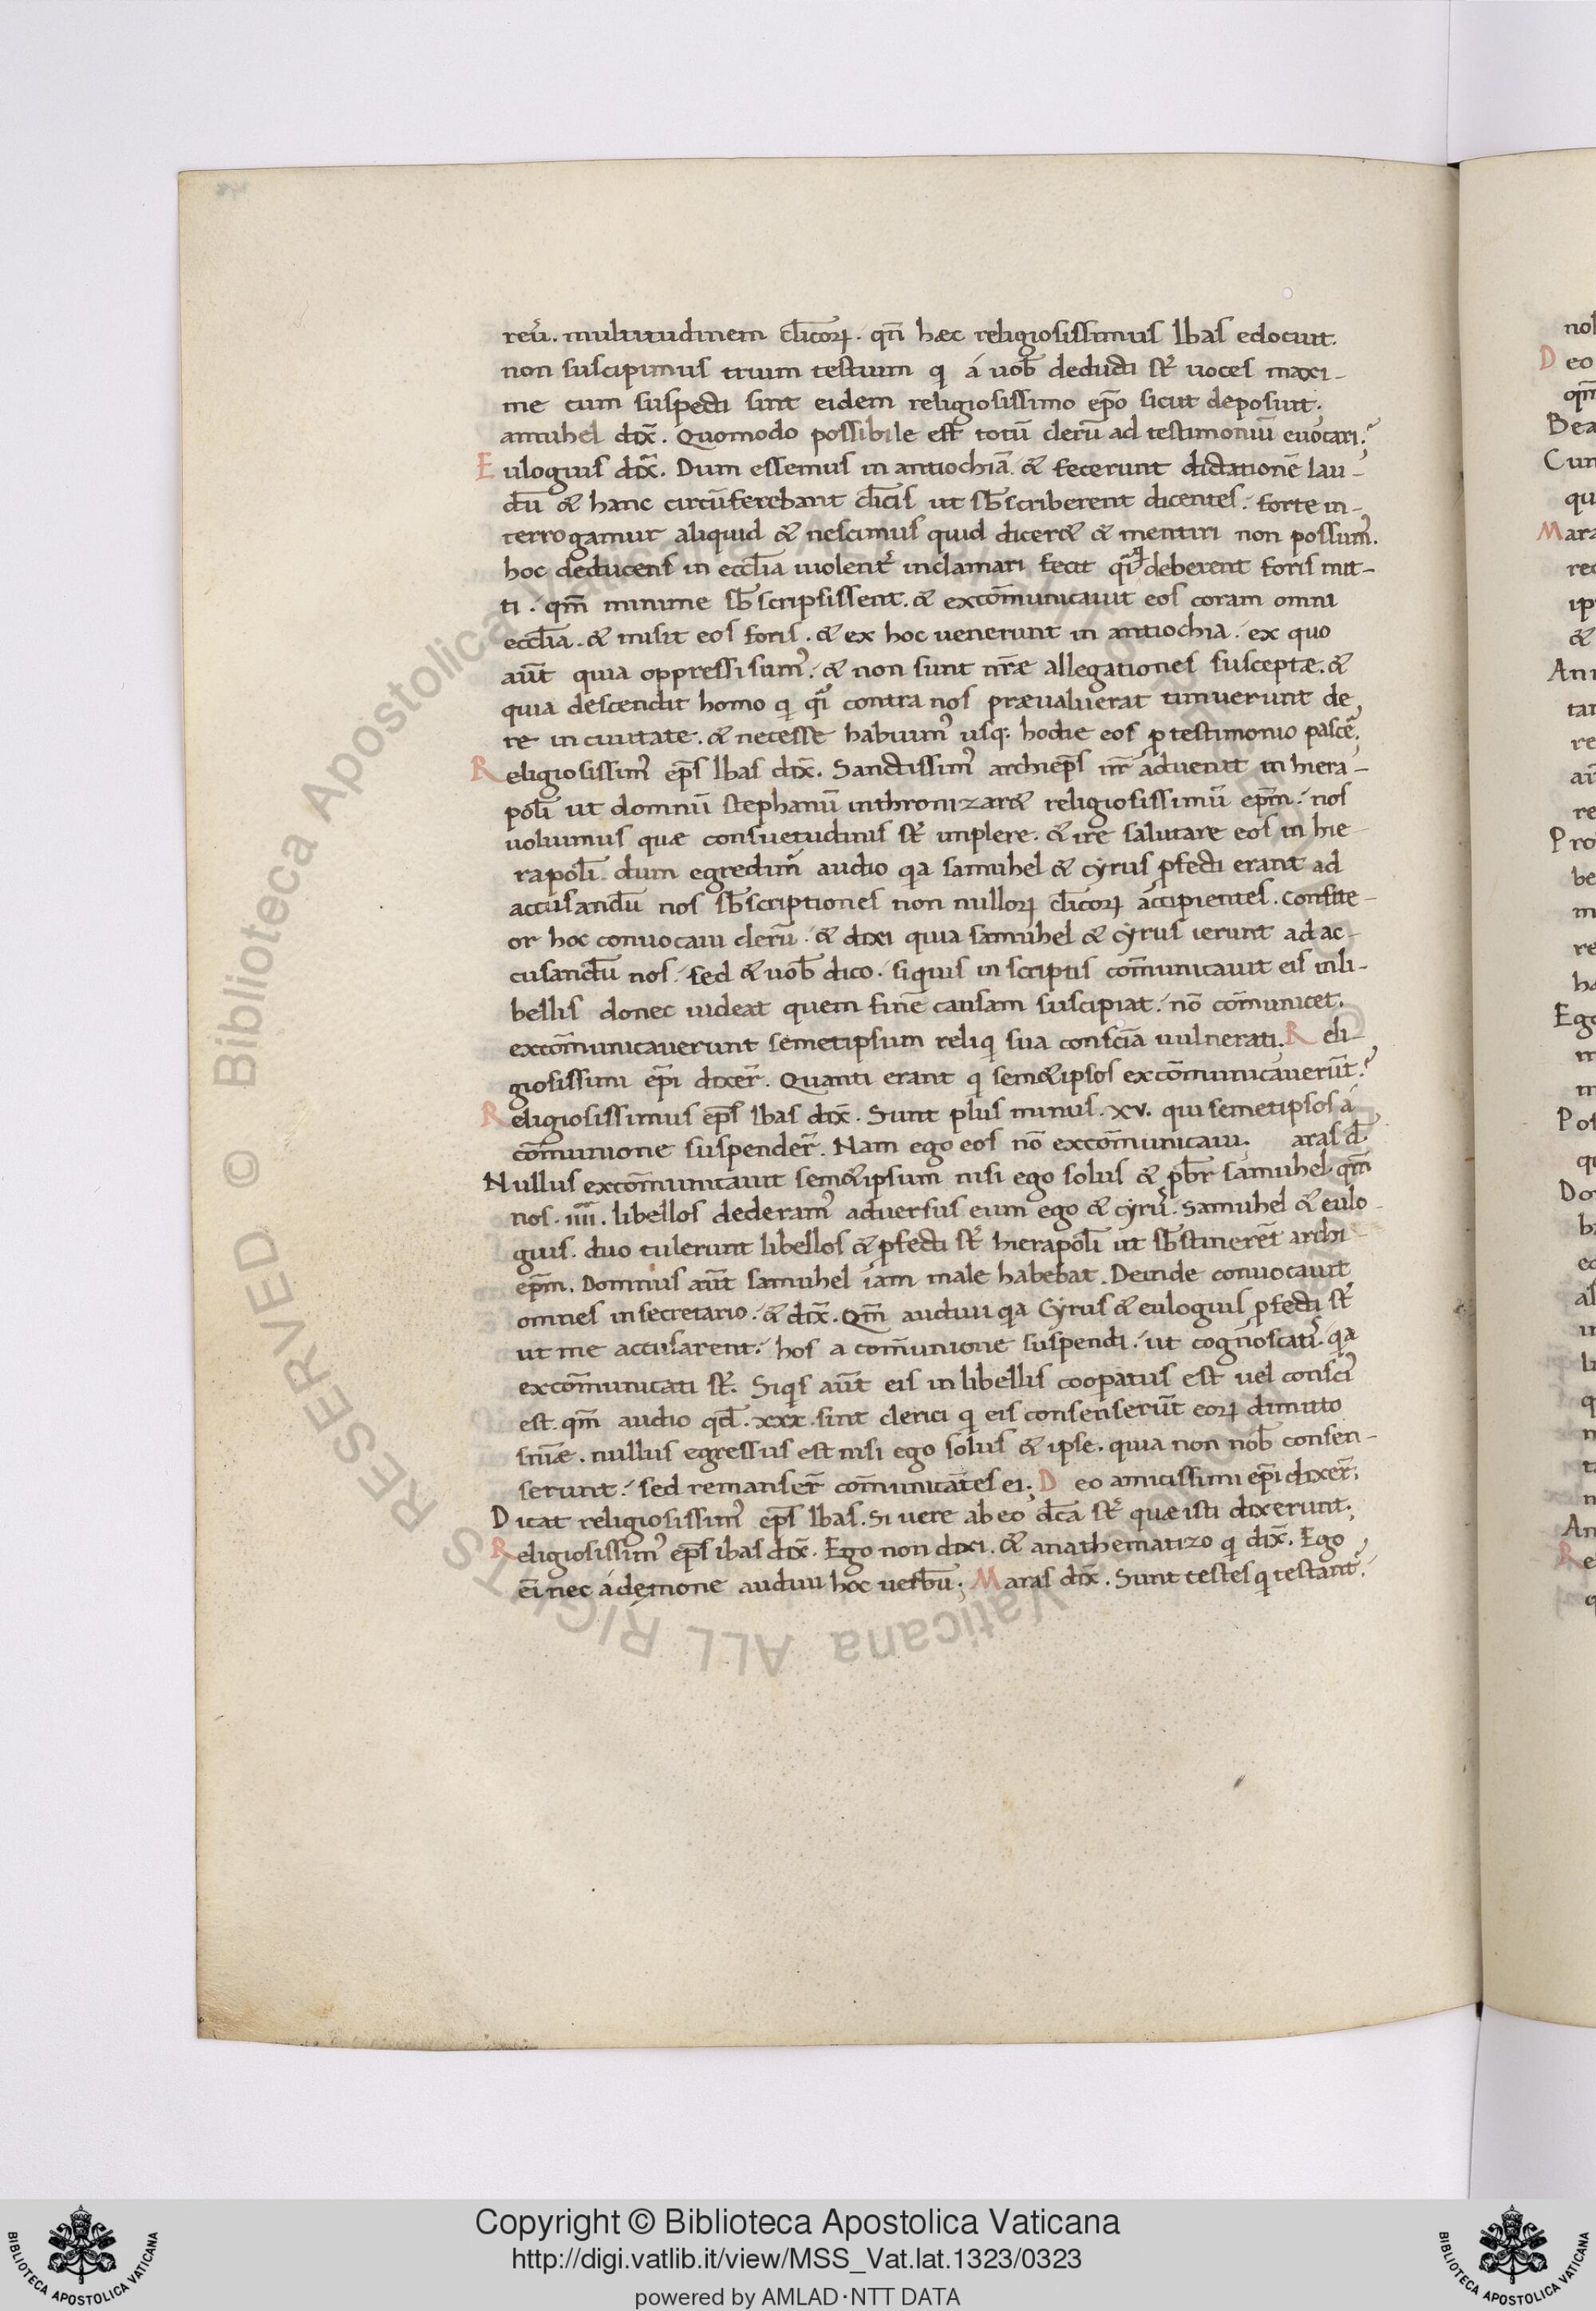 reū. multitudinem cl̄icoꝝ. qn̄ hæc religiosissimus Ibas edocuit.
non suscipimus trium testium q á uob̄ deducti st̄ uoces maxi-
me cum suspecti sint eidem religiosissimo ep̄o sicut deposuit.
amuhel dix̄. Quomodo possibile est totū clerū ad testimoniū euocari?
Eulogius dix̄. Dum essemus in antiochiā & fecerunt dictationē lau-
dū & hanc circūferebant cl̄icis ut sb̄scriberent dicentes. forte in-
terrogamur aliquid & nescimus quid dicer& & mentiri non possum᾿.
hoc deducens in eccl̄ia uiolent᾿ inclamari fecit qd̄ deberent foris mit-
ti. qm̄ minime sb̄scripsissent. & excōmunicauit eos coram omni
eccl̄ia. & misit eos foris. & ex hoc uenerunt in antiochia. ex quo
aūt quia oppressi sum᾿. & non sunt nr̄æ allegationes susceptæ. &
quia descendit homo q contra nos præualuerat timuerunt de
re in ciuitate. & necesse habuim᾿ usq; hodie eos p testimonio pascē;
Religiosissim᾿ ep̄s Ibas dix̄. Sanctissim᾿ archiep̄s nr̄ aduenit in hiera-
pol̄i ut domnū stephanū inthronizar& religiosissimū ep̄m. nos
uoluimus quæ consuetudinis st̄ implere. & ire salutare eos in hie-
rapol̄i. dum egredim᾿ audio qa samuhel & cyrus pfecti erant ad
accusandū nos sb̄scriptiones non nulloꝝ cl̄icoꝝ accipientes. Confite-
or hoc conuocaui clerū. & dixi quia samuhel & cyrus ierunt ad ac-
cusandū nos. sed & uob̄ dico. siquis in scriptis cōmunicauit eis in li-
bellis donec uideat quem finē causam suscipiat. nō cōmunicet.
excōmunicauerunt semetipsum reliq sua consciā uulnerati. Reli-
giosissimi ep̄i dixer̄. Quanti erant q sem&ipsos excōmunicauerūt?
Religiosissimus ep̄s Ibas dix̄. Sunt plus minus. xv. qui semetipsos a
cōmunione suspender̄. Nam ego eos nō excōmunicaui. aras d̄.
Nullus excōmunicauit sem&ipsum nisi ego solus & pb̄r samuhel. qm̄
nos. iiii. libellos dederam᾿ aduersus eum ego & cyrus. Samuhel & eulo-
gius. duo tulerunt libellos & pfecti st̄ hierapol̄i ut sb̄stinerēt archi
ep̄m. Domnus aūt samuhel iam male habebat. Deinde conuocauit
omnes in secretario. & dix̄. Qm̄ audiui qa Cyrus & eulogius pfecti st̄
ut me accusarent. hos a cōmunione suspendi. ut cognoscatis. qa
excōmunicati st̄. Siqis aūt eis in libellis coopatus est uel consci᾿
est. qm̄ audio qd̄. xxx. sint clerici q eis consenserūt eoꝝ dimitto
sn̄iæ. nullus egressus est nisi ego solus & ipse. quia non nob̄ consen-
serunt. sed remanser̄ cōmunicātes ei; Deo amicissimi ep̄i dixer̄;
Dicat religiosissim᾿ ep̄s Ibas. Si uere ab eo dc̄a st̄ quæ isti dixerunt;
Religiosissim᾿ ep̄s ibas dix̄. Ego non dixi. & anathematizo q dix̄. Ego
ei nec á demone audiui hoc uerbū; Maras dix̄. Sunt testes q testant᾿.
nol
Deo
qm̄
Bea
Cum
qu
Mara
rec
ip
&
Ann
tar
re
re
Pro
be
m
re
ha
Ego
m
m
Pos
q
Do
b
ec
al
q
n
An
Re
q
© Biblioteca Apostolica Vaticana ALL RIGHTS RESERVED
Copyright © Biblioteca Apostolica Vaticana
http://digi.vatlib.it/view/MSS_Vat.lat.1323/0323
powered by AMLAD·NTT DATA
BIBLIOTECA APOSTOLICA VATICANA
BIBLIOTECA APOSTOLICA VATICANA